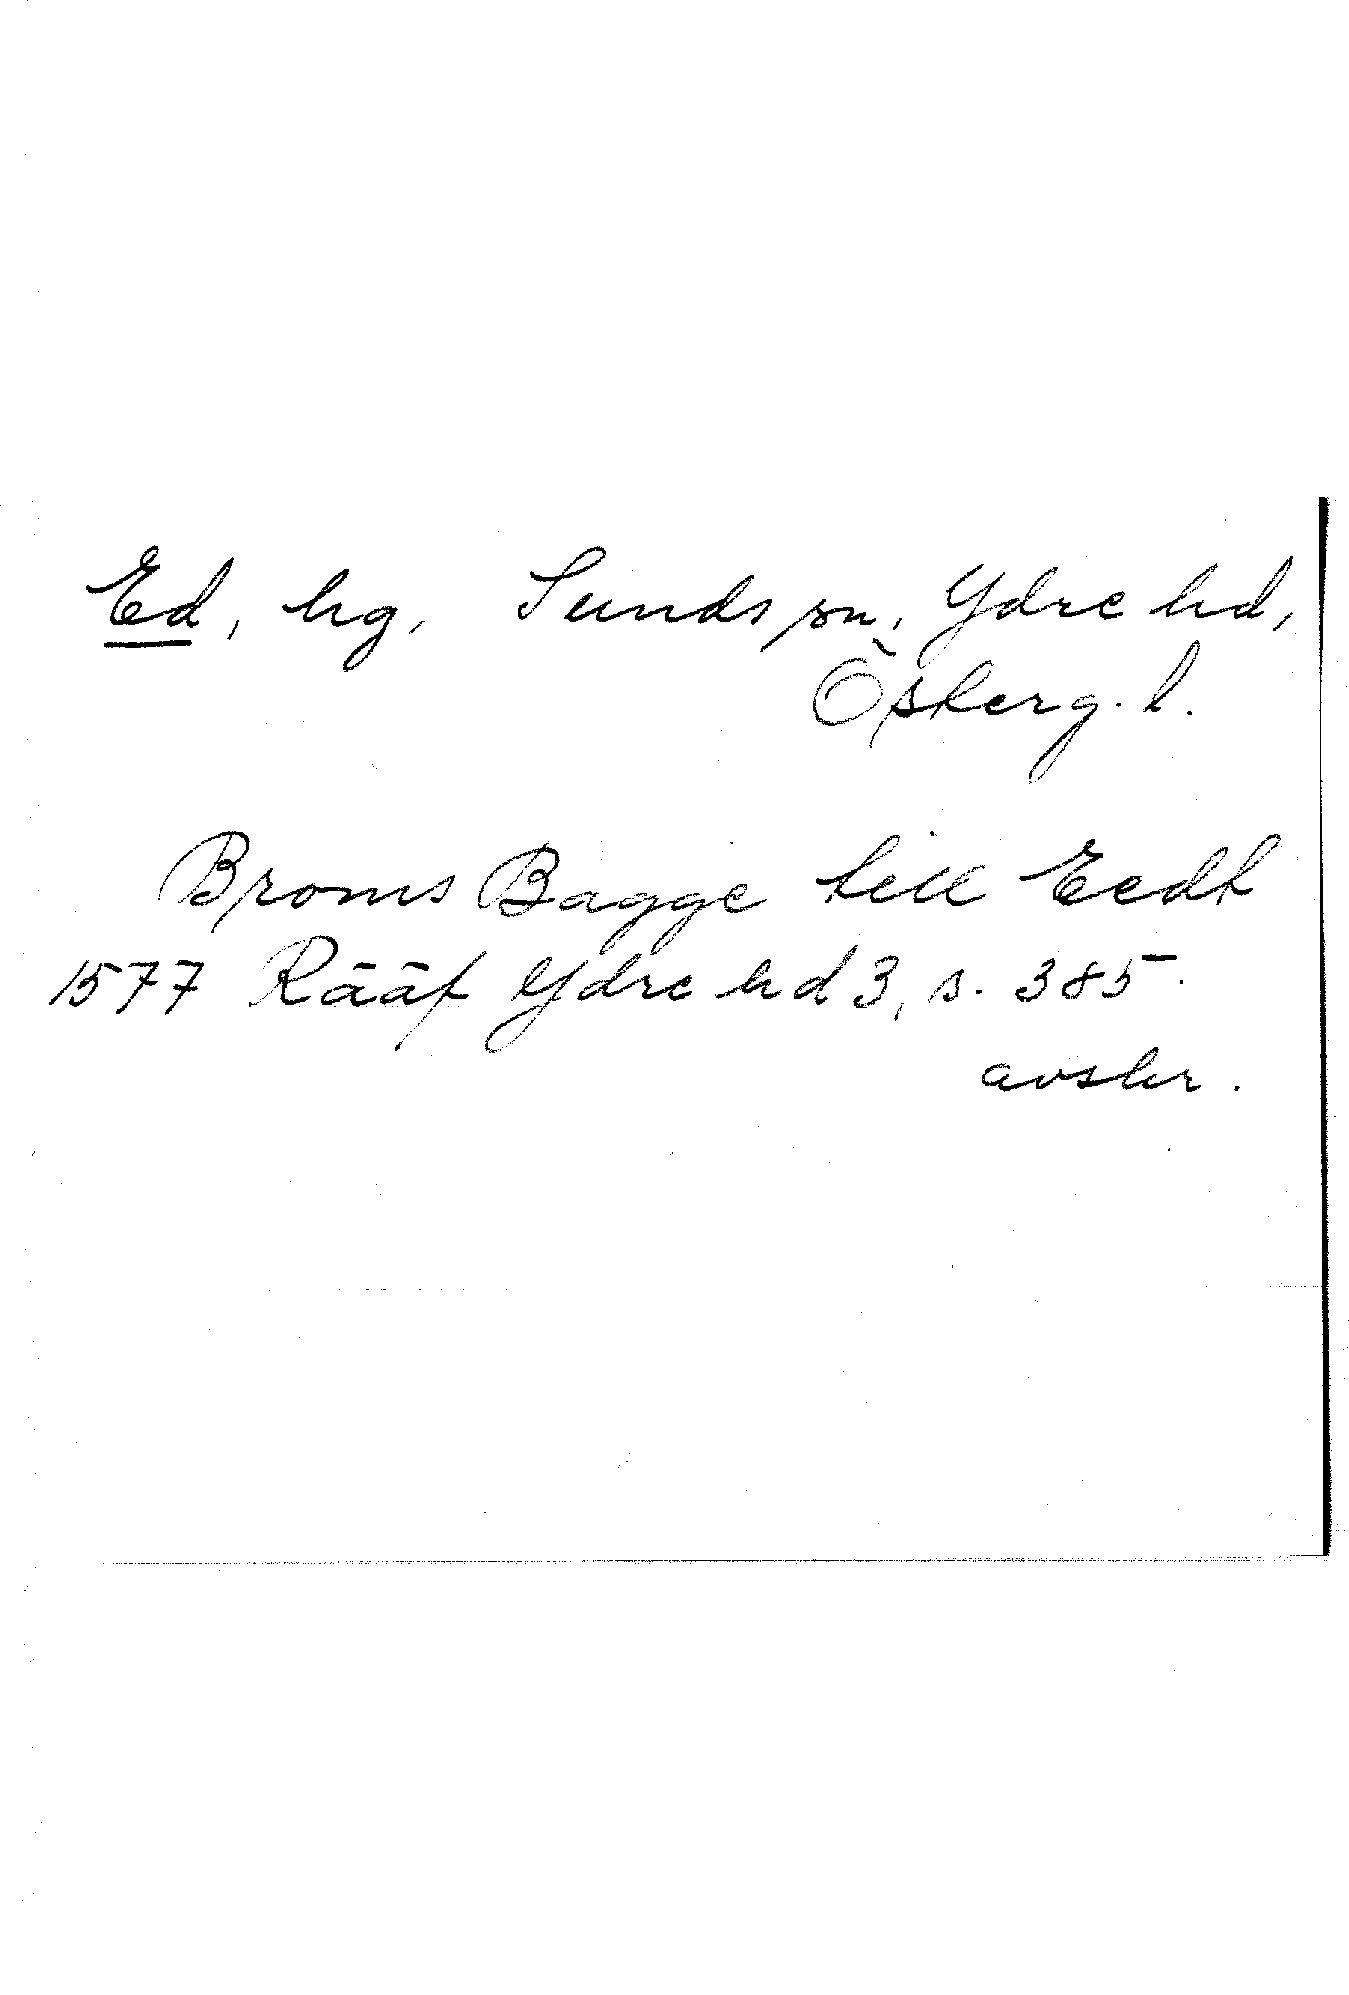 Ed, hg, Sunds sn, Ydre hd,
Österg. l.
Broms Bagge till Eedh
1577 Rääf Ydre hd 3, s. 385.
avskr.